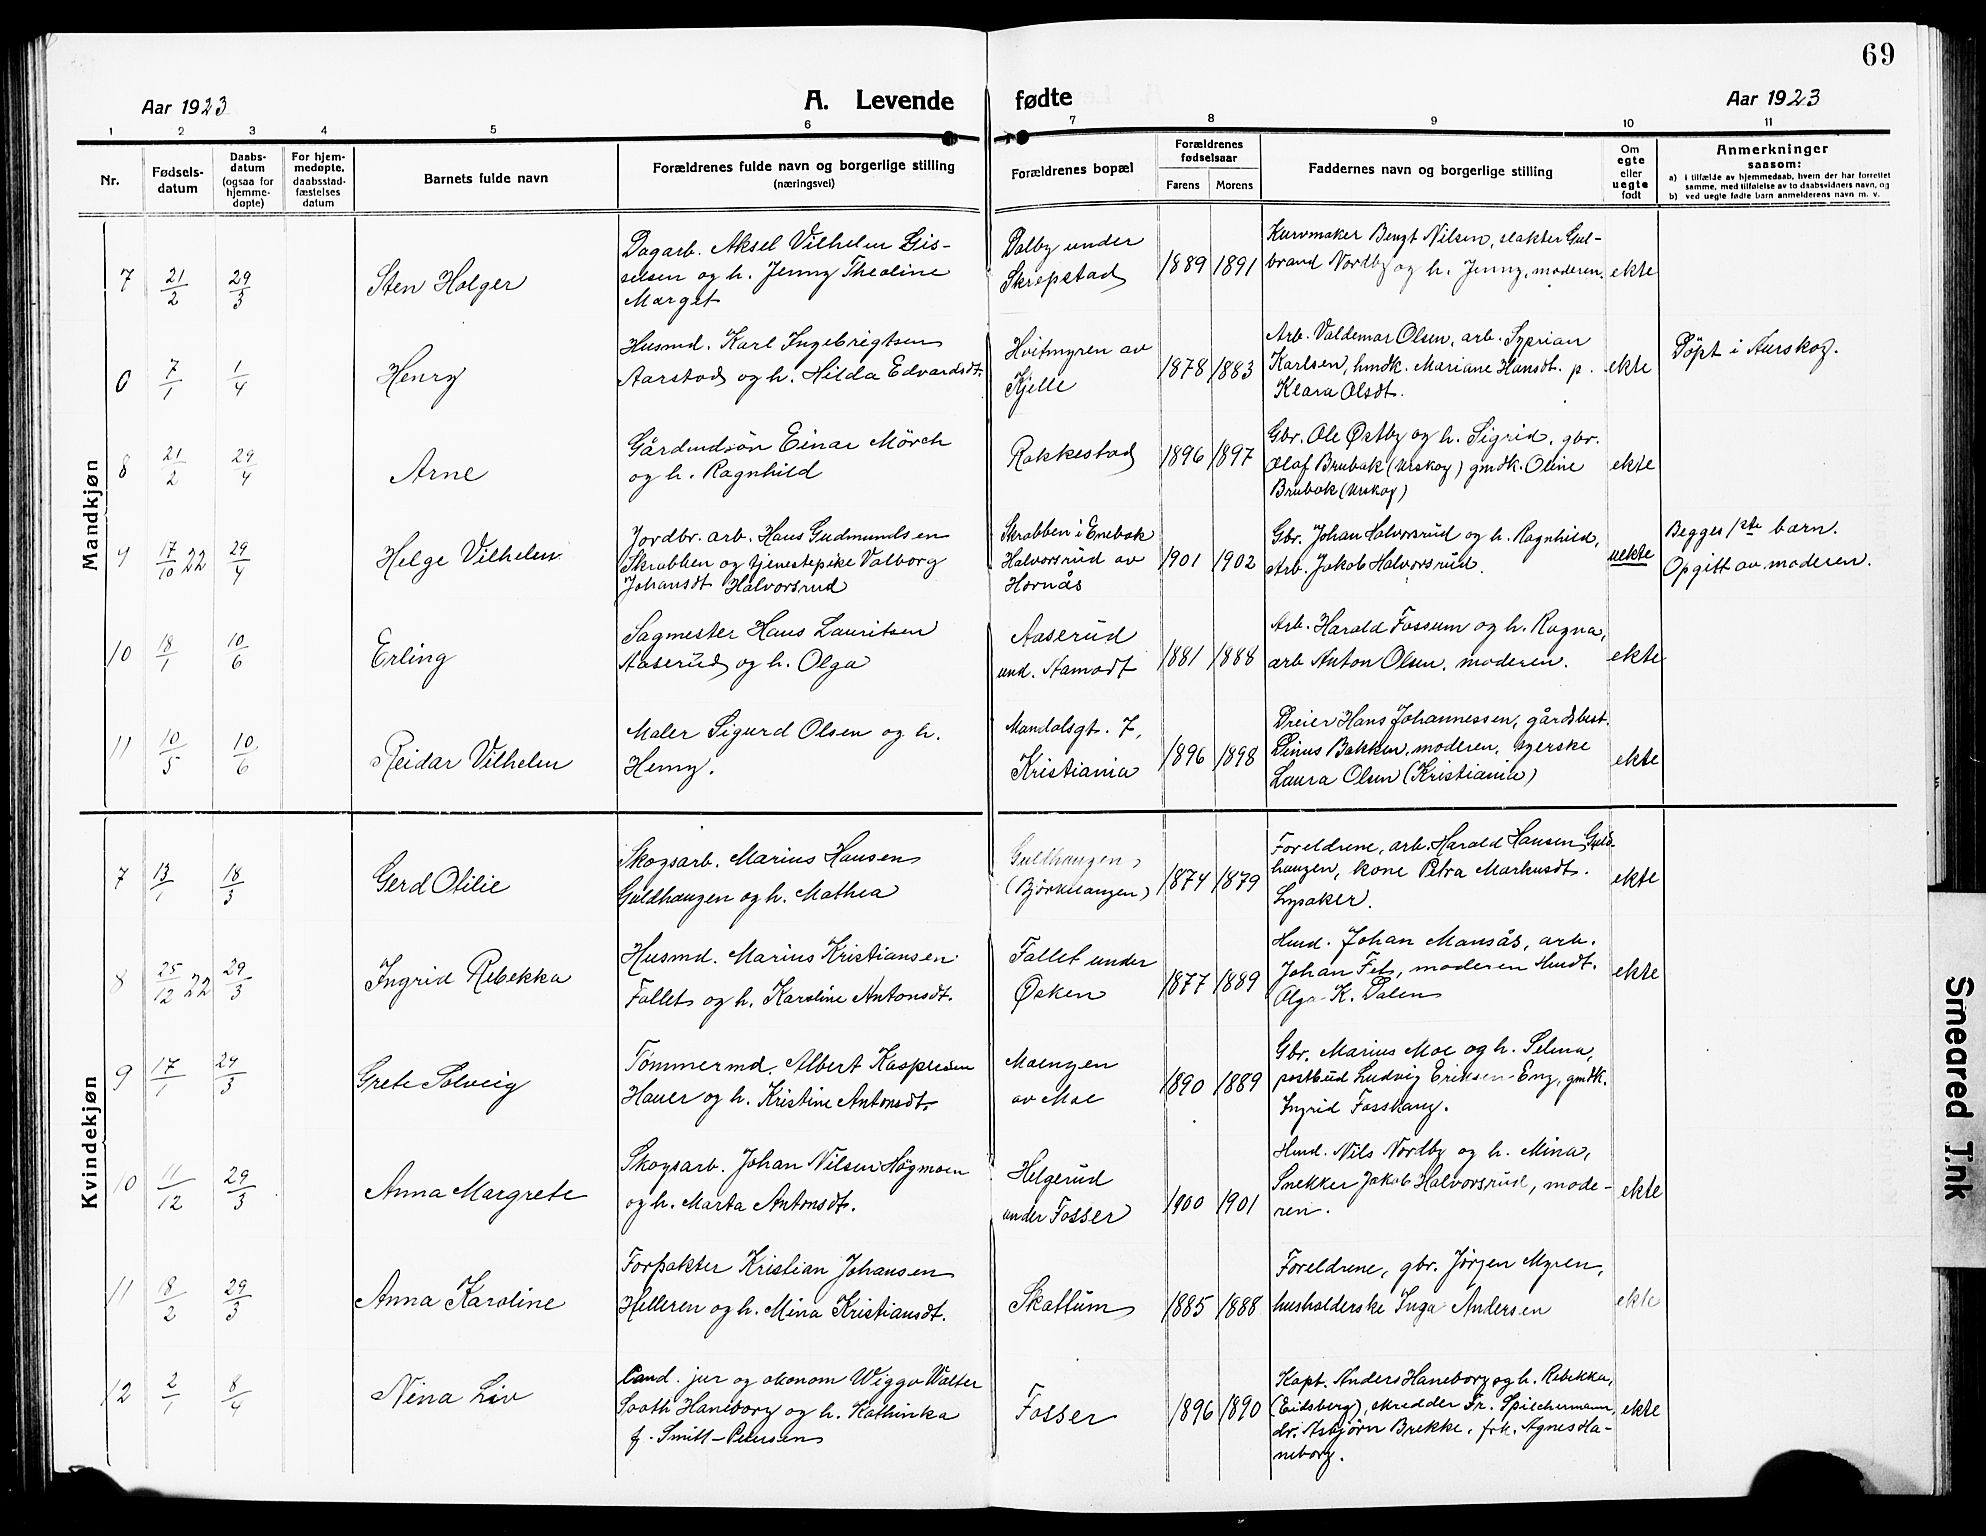 69
Aar 1923 A. Levende fødte Aar 1923
1 2 3 4 5 6 7 8 9 10 11
Nr. Fødsels-datum Daabs-datum (ogsaa for hjemme-døpte) For hjem-medøpte, daabsstad-fæstelses datum Barnets fulde navn Forældrenes fulde navn og borgerlige stilling (næringsvei) Forældrenes bopæl Forældrenes fødselsaar Farens Morens Faddernes navn og borgerlige stilling Om egte eller uegte født Anmerkninger saasom:
a) i tilfælde av hjemmedaab, hvem der har forrettet samme, med tilføielse av to daabsvidners navn, og
b) ved uegte fødte barn anmelderens navn m. v.
Mandkjøn
7 21/2 29/3 Sten Holger
Dagarb. Aksel Vilhelm Gis-
selsen og h. Jenny Theoline
Marget
Dalby under
Skrepstad
1889 1891
Kurvmaker Bengt Nilsen, slakter Gul-
brand Nordby og h. Jenny, moderen.
ekte
0 7/1 1/4 Henry
Husmd. Karl Ingebrigtsen
Aarstad og h. Hilda Edvardsdt.
Hvitmyren av
Kjelle
1878 1883
Arb. Valdemar Olsen, arb. Syprian
Karlsen, hmdk. Mariane Hansdt. p.
Klara Olsdt.
ekte
Døpt i Aurskog.
8 21/2 29/4 Arne
Gårdmdsön Einar Mörch
og h. Ragnhild
Rakkestad
1896 1897
Gbr. Ole Østby og h. Sigrid, gbr.
Olaf Brubak (Urskog) gmdk. Oline
Brubak (Urskog)
ekte
9 17/10 22 29/4 Helge Vilhelm
Jordbr. arb. Hans Gudmundsen
Skrabben og tjenestepike Valborg
Johansdt Halvorsrud
Skrabben i Enebak
Halvorsrud av
Hornås
1901 1902
Gbr. Johan Halvorsrud og h. Ragnhild,
Arb. Jakob Halvorsrud.
uekte
Begges 1ste barn.
Opgitt av moderen.
10 18/1 10/6 Erling
Sagmester Hans Lauritsen
Aaserud og h. Olga
Aaserud
und. Aamodt
1881 1888
Arb. Harald Fossum og h. Ragna,
arb Anton Olsen, moderen.
ekte
11 10/5 10/6 Reidar Vilhelm
Maler Sigurd Olsen og h.
Henny.
Mandalsgt. 7,
Kristiania
1896 1898
Dreier Hans Johannessen, gårdsbest.
Linus Bakken, moderen, syerske
Laura Olsen (Kristiania)
ekte
Kvindekjøn
7 13/1 18/3 Gerd Otilie
Skogsarb. Marius Hansen
Guldhaugen og h. Mathea
Guldhaugen,
(Björkhaugen)
1874 1879
Foreldrene, arb. Harald Hansen Guld-
haugen, kone Petra Markusdt.
Lysaker.
ekte
8 25/12 22 29/3 Ingrid Rebekka
Husmd. Marius Kristiansen
Fallet og h. Karoline Antonsdt.
Fallet under
Øsken
1877 1889
Husd. Johan Mansås, arb.
Johan Fet, moderen Husdt.
Olga K. Dalen
ekte
9 17/1 29/3 Grete Solveig
Tømmermd. Albert Kaspersen
Hauer og h. Kristine Antonsdt.
Moengen
av Moe
1890 1889
Gbr. Marius Moe og h. Selma,
postbud Ludvig Eriksen Eng, gmdk.
Ingrid Fosshaug.
10 11/12 29/3 Anna Margrete
Skogsarb. Johan Nilsen Högmoen
og h. Marta Antonsdt.
Helgerud
under Fosser
1900 1901
Husd. Nils Nordby og h. Mina,
Snekker Jakob Halvorsrud, mode-
ren.
ekte
11 18/2 29/3 Anna Karoline
Forpakter Kristian Johansen
Helleren og h. Mina Kristiansdt.
Skattum
1885 1888
Foreldrene, gbr. Jørgen Myren,
husholderske Inga Andersen
ekte
12 2/1 8/4 Nina Liv
Cand. jur og økonom Wiggo Walter
Sooth Haneborg og h. Kathinka
f. Smitt-Petersen
Fosser
1896 1890
Kapt. Anders Haneborg og h. Rebekka,
(Eidsberg), skredder Fr. Spilchumann,
dr. Asbjörn Brekke, frk. Agnes Ha-
neborg.
ekte
Smeared Ink